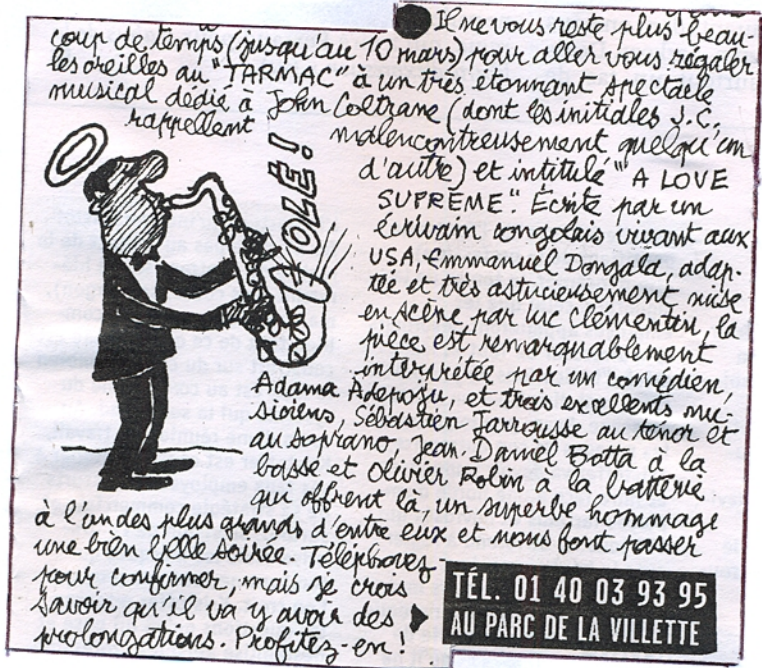 Il ne vous reste plus beau-
coup de temps (jusqu'au 10 mars) pour aller vous régaler
les oreilles au "TARMAC" à un très étonnant spectacle
musical dédié à John Coltrane (dont les initiales J.C.
rappellent malencontreusement quelqu'un
d'autre) et intitulé "A LOVE
SUPRÊME". Écrite par un
écrivain congolais vivant aux
USA, Emmanuel Dongala, adap-
tée et très astucieusement mise
en scène par Luc Clémentin, la
pièce est remarquablement
interprétée par un comédien,
Adama Adepoju, et trois excellents mu-
siciens, Sébastien Jarrousse au ténor et
au soprano, Jean-Daniel Botta à la
basse et Olivier Robin à la batterie
qui offrent là, un superbe hommage
à l'un des plus grands d'entre eux et nous font passer
une bien belle soirée. Téléphonez
pour confirmer, mais je crois
savoir qu'il va y avoir des
prolongations. Profitez-en !
OLÉ!
TÉL. 01 40 03 93 95
AU PARC DE LA VILLETTE